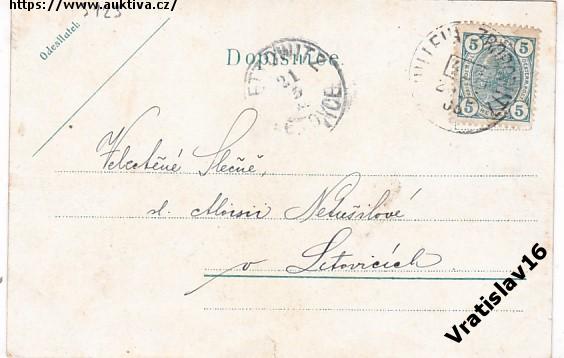 https://www.auktiva.cz/
Odesílatel:
Dopisnice
5 5
5 5
21
5
Velectěné Slečně,
sl. Aloisii Netušilové
v Letovicích
Vratislav16